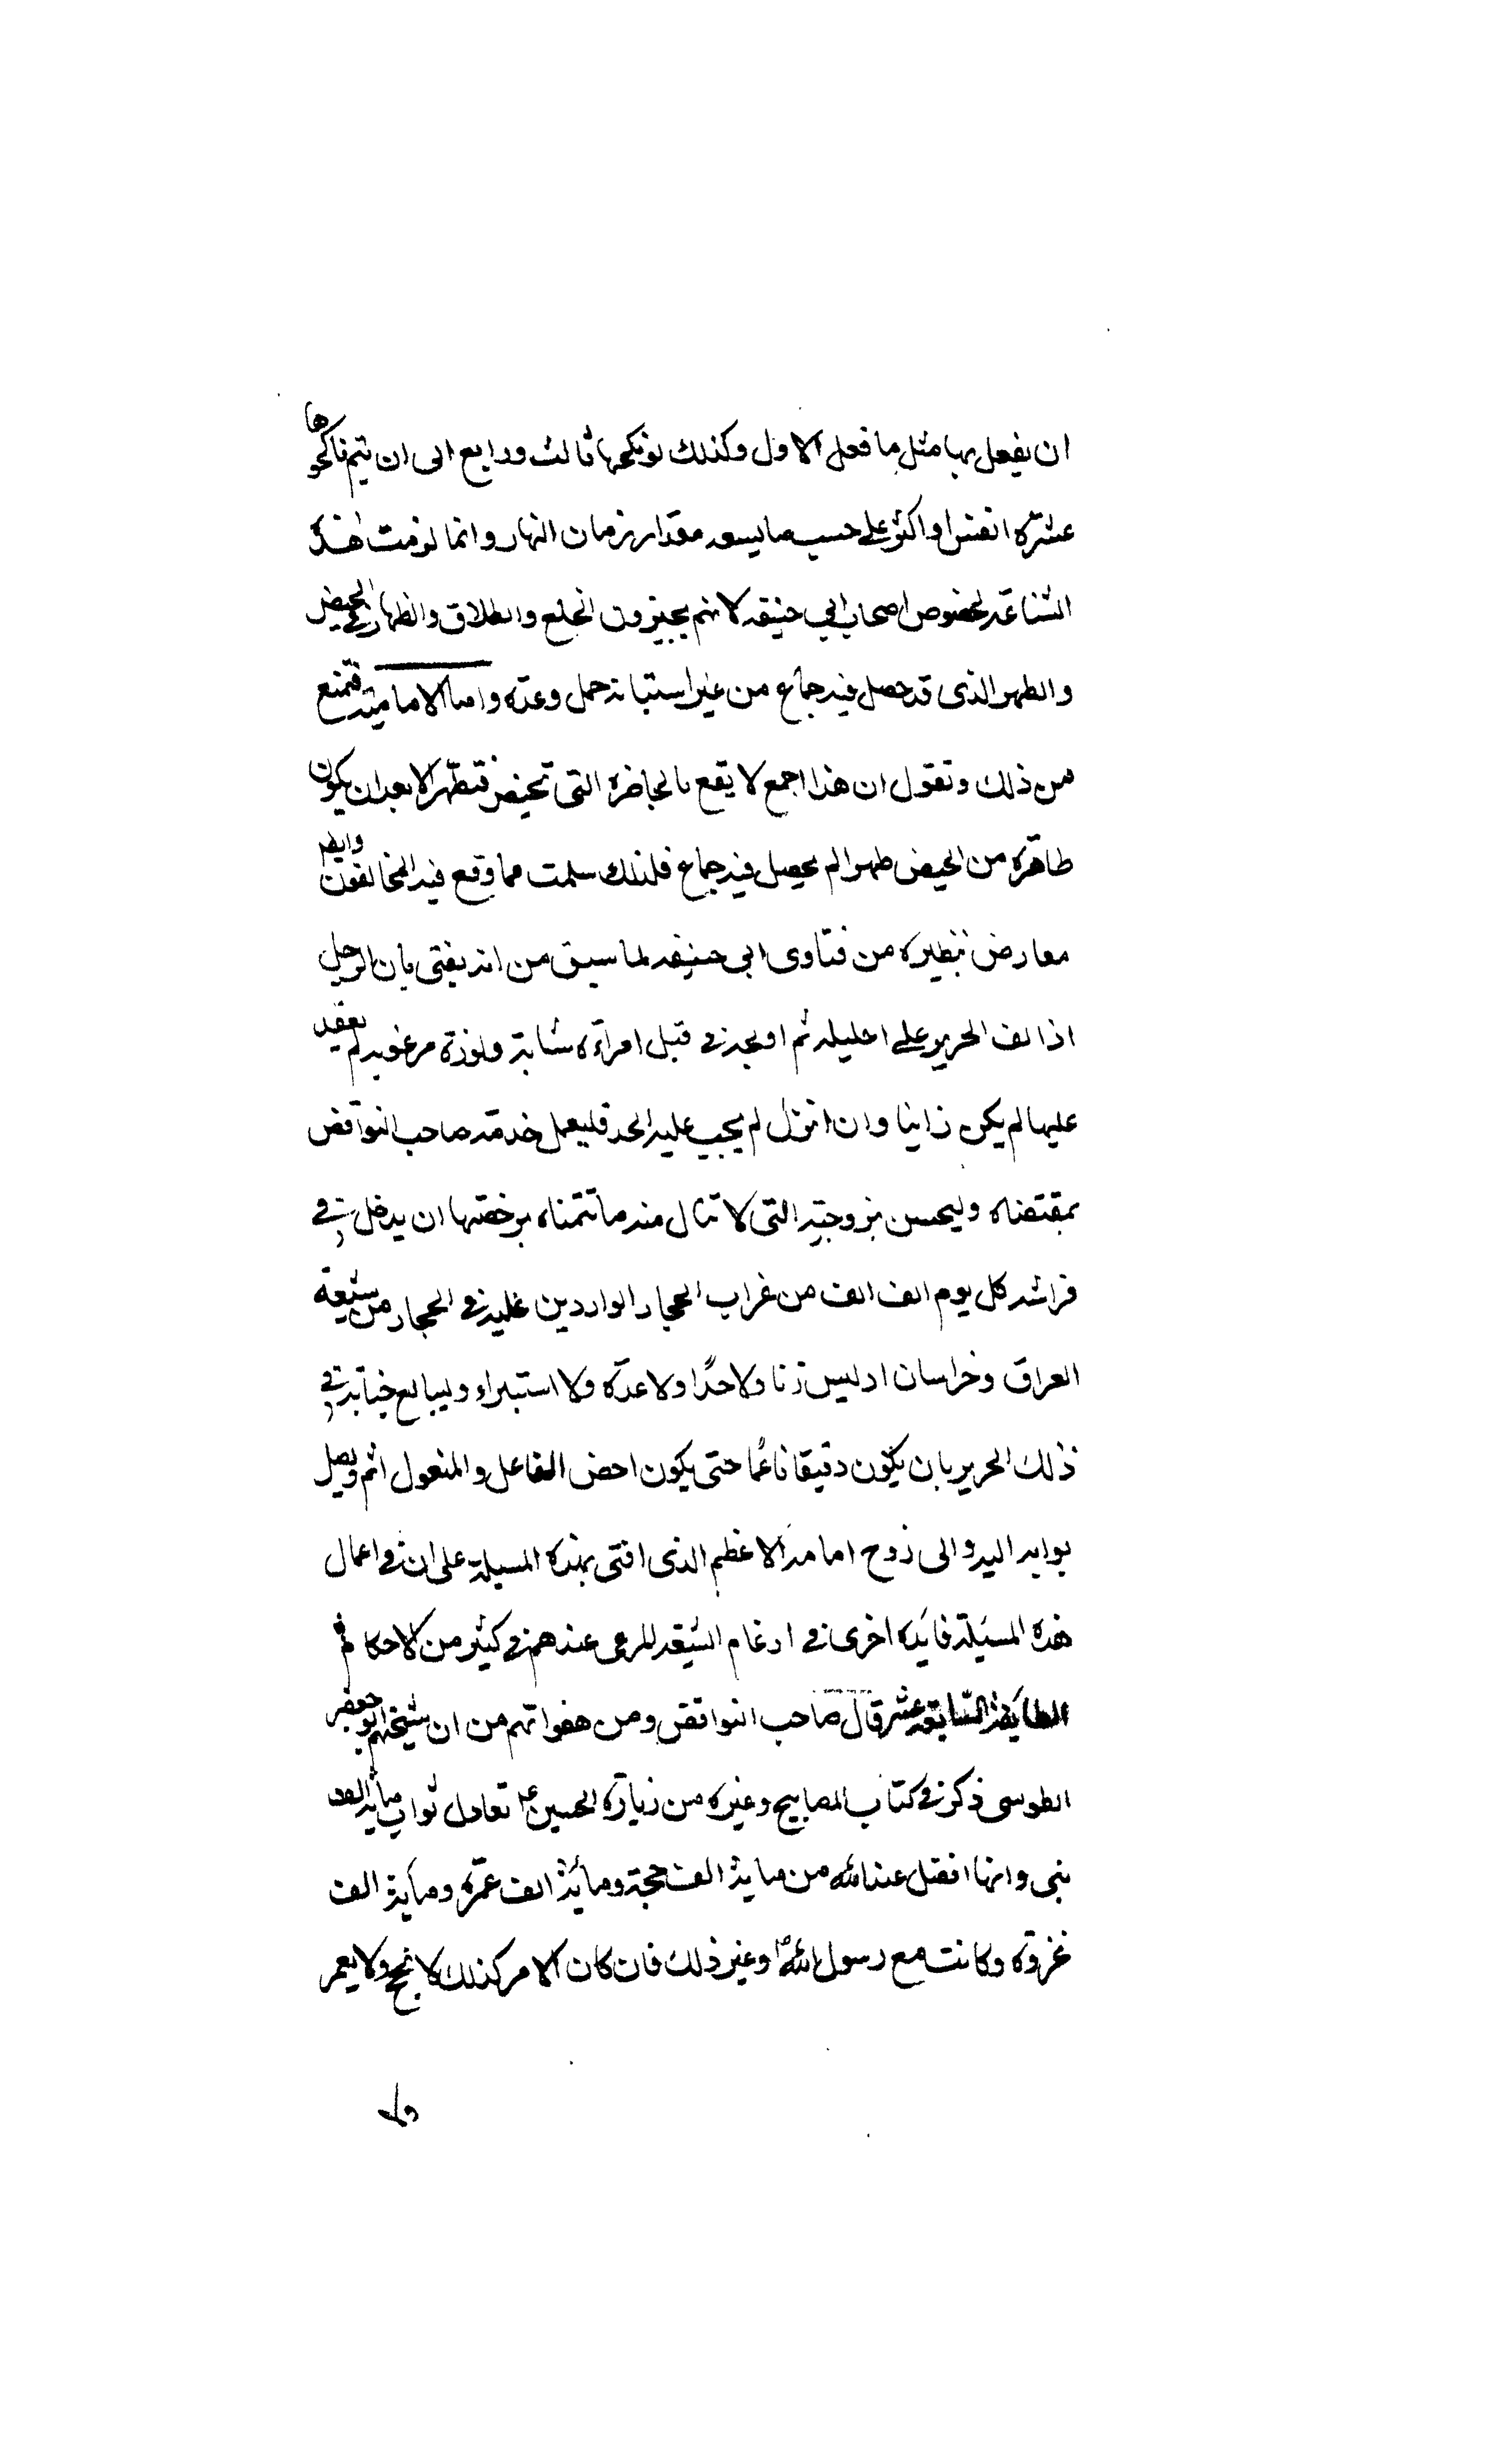 ان يفعل بها مثل ما فعل الاول وكذلك لو نكحها ثالث ورابع الى ان يتم ناكحوها
عشرة انفس او اكثر على حسب ما يسعه مقدار زمان النهار وانما لزمت هذه
الشناعة لخصوص اصحاب ابي حنيفه لانهم يجيزون الخلع والطلاق والظهار في الحيض
والطهر الذى قد حصل فيه جماع من غير استبانة حمل وعدة واما الامامية فتمنع
من ذلك وتقول ان هذا اجمع لا يقع بالحاضرة التى تحيض فتطهر الا بعد ان يكون
طاهرة من الحيض طهرا لم يحصل فيه جماع فلذلك سلمت مما وقع فيه المخالفون وايضا
معارض بنظيره من فتاوى ابي حنيفه لما سبق من انه يفتى بان الرجل
اذا لف الحرير على احليله ثم اولجه في قبل امراة شابة مرغوبه لم يعقد
عليها لم يكن زانيا وان انزل لم يجب عليه الحد فليعمل صاحب النواقض
بمقتضاه وليحسن بزوجته التى لا تنال منه ما تتمناه برخصتها ان يدخل في
فراشه كل يوم الف الف من غراب الحجار الواردين عليه في الحجار من شيعة
العراق وخراسان اذ ليس زنا ولا حدا ولا عدة ولا استبراء وليبالغ في
ذلك الحرير بان يكون دقيقا ناعما حتى يكون الفاعل والمفعول اتم ويصل
ثوابه اليه والى روح امامه الاعظم الذى افتى بهذه المسيلة على ان في اعمال
هذه المسئلة فائدة اخرى في ارغام الشيعه المرعى عندهم في كثير من الاحكام
الطايفة السابعة عشر قال صاحب النواقض ومن هفواتهم من ان شيخهم ابو جعفر
الطوسى ذكر في كتاب المصابيح وغيره من زيارة الحسين ع تعادل ثواب مائة الف
نبى وانها افضل عند الله من ماية الف حجة ومائة الف عمرة وماية الف
غزوة وكانت مع رسول الله ص وغير ذلك فان كان الامر كذلك لا نحج ولا يعمر
ولا